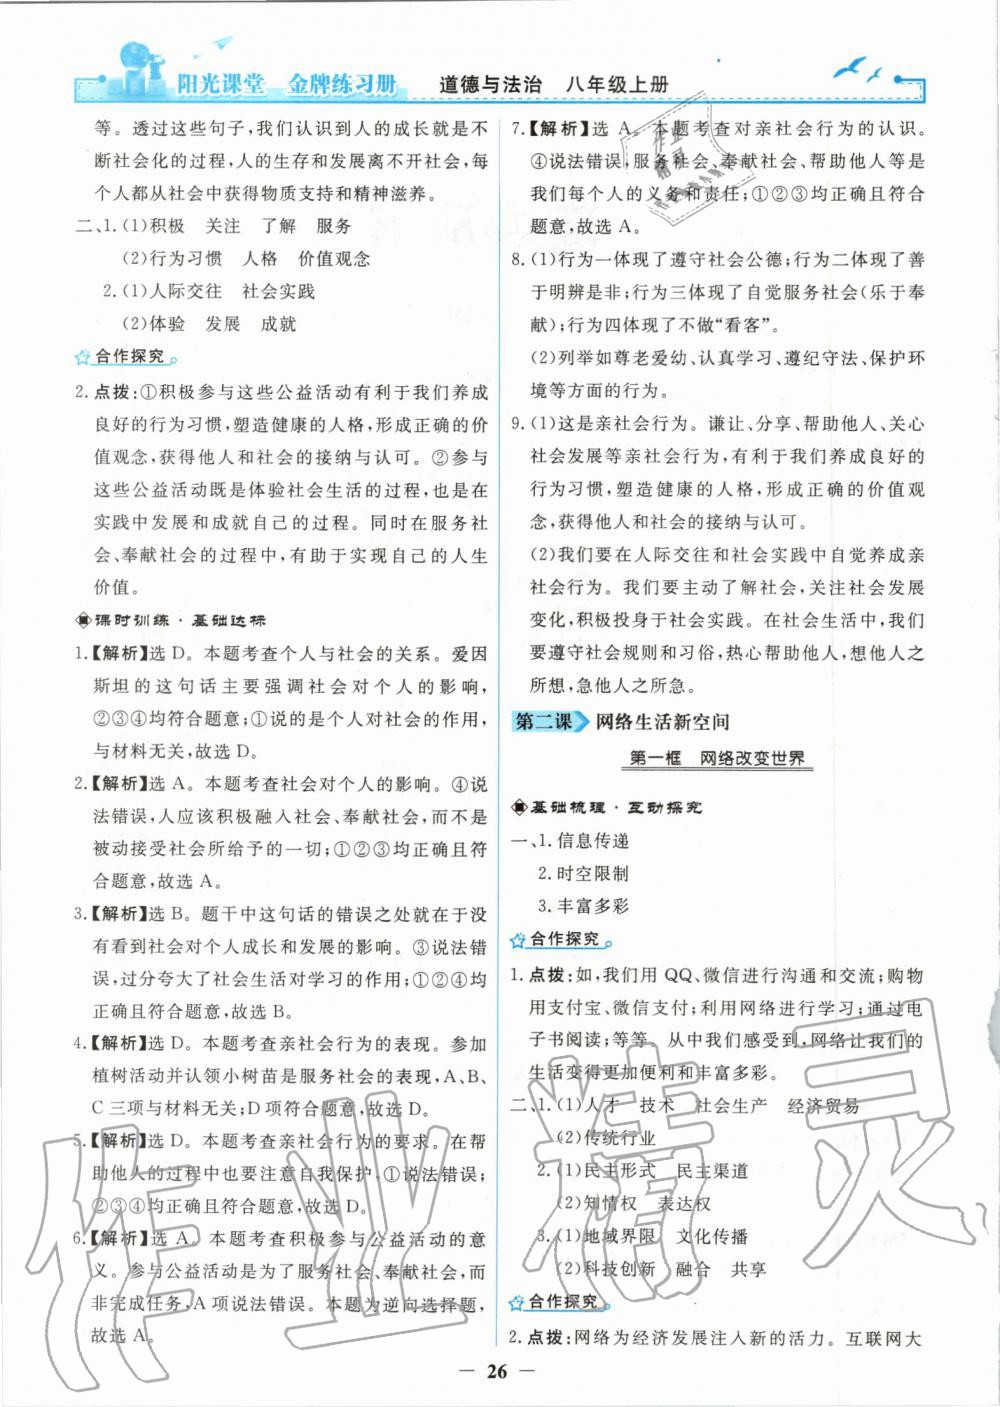 阳光课堂 金牌练习册 道德与法治 八年级上册
等。透过这些句子,我们认识到人的成长就是不
断社会化的过程,人的生存和发展离不开社会,每
个人都从社会中获得物质支持和精神滋养。
二、1.(1)积极 关注 了解 服务
(2)行为习惯 人格 价值观念
2.(1)人际交往 社会实践
(2)体验 发展 成就
合作探究
2.点拨:①积极参与这些公益活动有利于我们养成
良好的行为习惯,塑造健康的人格,形成正确的价
值观念,获得他人和社会的接纳与认可。②参与
这些公益活动既是体验社会生活的过程,也是在
实践中发展和成就自己的过程。同时在服务社
会、奉献社会的过程中,有助于实现自己的人生
价值。
课时训练·基础达标
1.【解析】选 D。本题考查个人与社会的关系。爱因
斯坦的这句话主要强调社会对个人的影响,
②③④均符合题意;①说的是个人对社会的作用,
与材料无关,故选 D。
2.【解析】选 A。本题考查社会对个人的影响。④说
法错误,人应该积极融入社会、奉献社会,而不是
被动接受社会所给予的一切;①②③均正确且符
合题意,故选 A。
3.【解析】选 B。题干中这句话的错误之处就在于没
有看到社会对个人成长和发展的影响。③说法错
误,过分夸大了社会生活对学习的作用;①②④均
正确且符合题意,故选 B。
4.【解析】选 D。本题考查亲社会行为的表现。参加
植树活动并认领小树苗是服务社会的表现,A、B、
C 三项与材料无关;D 项符合题意,故选 D。
5.【解析】选 D。本题考查亲社会行为的要求。在帮
助他人的过程中也要注意自我保护,①说法错误;
②③④均正确且符合题意,故选 D。
6.【解析】选 A。本题考查积极参与公益活动的意
义。参与公益活动是为了服务社会、奉献社会,而
非完成任务,A 项说法错误。本题为逆向选择题,
故选 A。
7.【解析】选 A。本题考查对亲社会行为的认识。
④说法错误,服务社会、奉献社会、帮助他人等是
我们每个人的义务和责任;①②③均正确且符合
题意,故选 A。
8.(1)行为一体现了遵守社会公德;行为二体现了善
于明辨是非;行为三体现了自觉服务社会(乐于奉
献);行为四体现了不做“看客”。
(2)列举如尊老爱幼、认真学习、遵纪守法、保护环
境等方面的行为。
9.(1)这是亲社会行为。谦让、分享、帮助他人、关心
社会发展等亲社会行为,有利于我们养成良好的
行为习惯,塑造健康的人格,形成正确的价值观
念,获得他人和社会的接纳与认可。
(2)我们要在人际交往和社会实践中自觉养成亲
社会行为。我们要主动了解社会,关注社会发展
变化,积极投身于社会实践。在社会生活中,我们
要遵守社会规则和习俗,热心帮助他人,想他人之
所想,急他人之所急。
第二课 网络生活新空间
第一框 网络改变世界
基础梳理·互动探究
一、1.信息传递
2.时空限制
3.丰富多彩
合作探究
1.点拨:如,我们用 QQ、微信进行沟通和交流;购物
用支付宝、微信支付;利用网络进行学习;通过电
子书阅读;等等。从中我们感受到,网络让我们的
生活变得更加便利和丰富多彩。
二、1.(1)人才 技术 社会生产 经济贸易
(2)传统行业
2.(1)民主形式 民主渠道
(2)知情权 表达权
3.(1)地域界限 文化传播
(2)科技创新 融合 共享
合作探究
2.点拨:网络为经济发展注入新的活力。互联网大
26
作业精灵